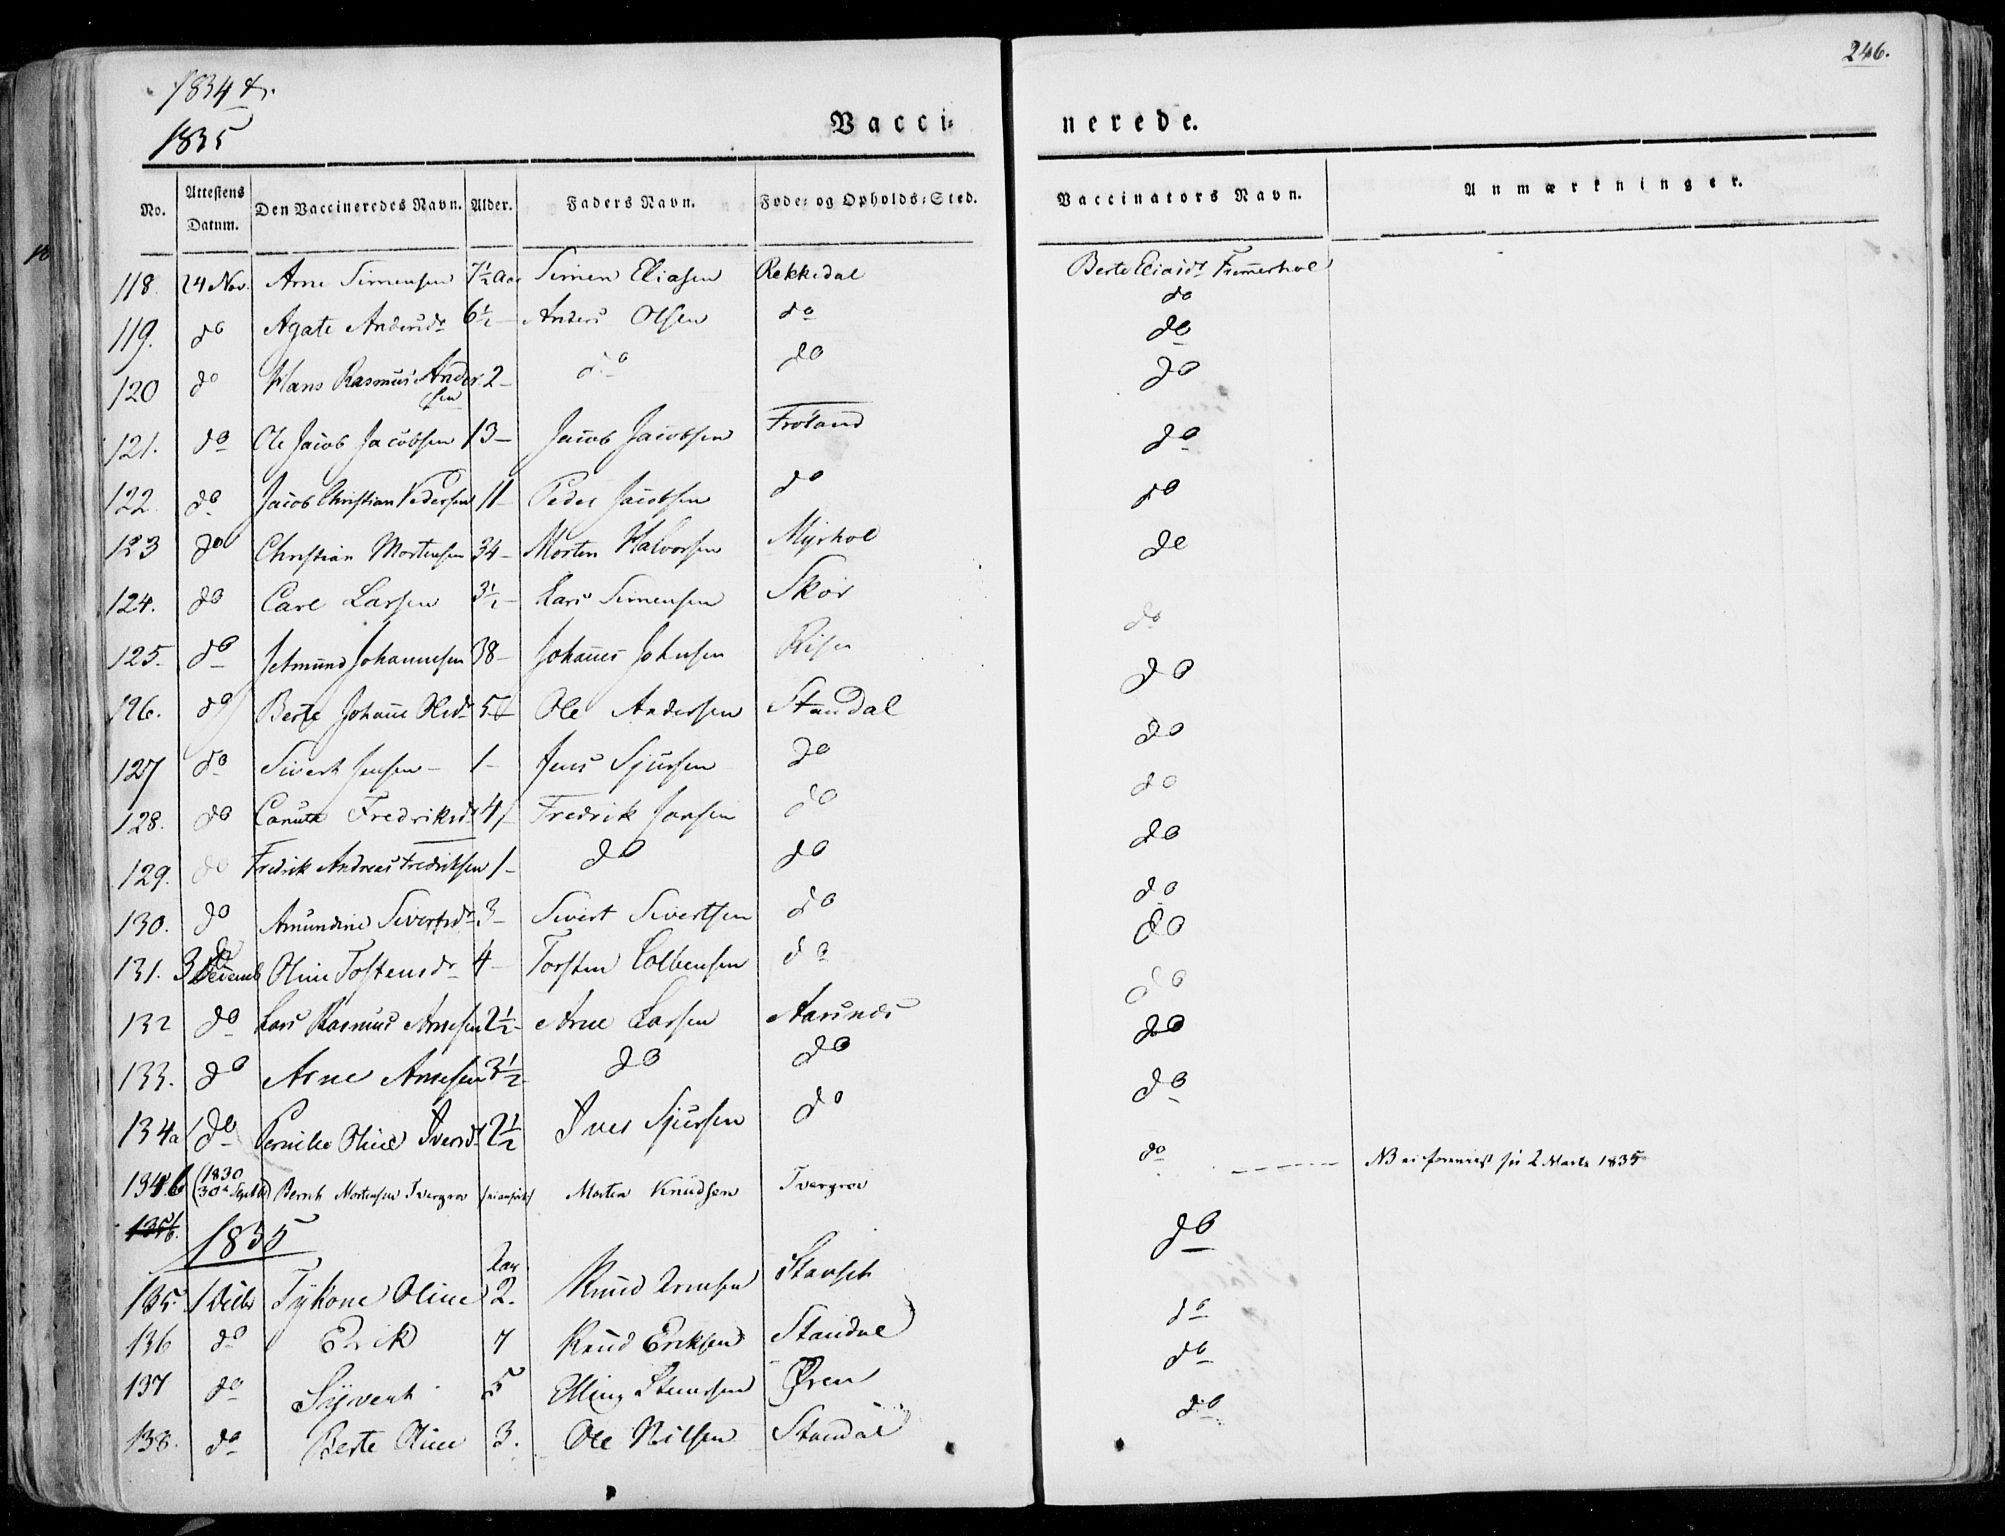 246.
1834 &
1835
Vacci-
nerede.
No. Attestens Datum. Den Vaccineredes Navn. Alder. Faders Navn. Føde- og Opholds-Sted. Vaccinators Navn. Anmærkninger.
118. 24 Nov. Arne Simensen 7½ Aar Simen Eliasen Rekkedal Berte Eliasdr
119. do Agate Andersdr 6½ – Anders Olsen do do
do
120 do Hans Rasmus Andersen 2 – do do do
121. do Ole Jacob Jacobsen 13 – Jacob Jacobsen Frøland do
122. do Jacob Christian Pedersen 11 – Peder Jacobsen do do
123 do Christian Mortensen 34 – Morten Halvorsen Myrhol do
124. do Carl Larsen 3½ – Lars Simensen Skor do
125. do Jetmund Johannesen 38 – Johannes Johnsen Riise do
126. do Berte Johanne Olsdr Ole Andersen Standal do
127 do Sivert Jensen – 1 – Jens Sjursen do do
128. do Canute Fredriksdr 4 Fredrik Jonsen do do
129. do Fredrik Andreas Fredriksen 1 – do do do
130. do Amundine Sivertsdr 3 – Sivert Sivertsen do do
131. 3 Decemb Oline Tostensdr 4 – Torsten Colbensen do do
132 do Lars Rasmus Arnesen 2½ – Arne Larsen Aarsnes do
133. do Arne Arnesen 3½ do do do
134a do Pernille Oline Iversdr 2½ Iver Sjursen do do
134.b (1830 30te Septbr) Bernt Mortensen Tvergrov Morten Knudsen Tvergrov NB 2 Marts 1835
135b.
1835
135. 1 Decbr Oline 2. Aar Knud Stavseth do
136 do Erik 7 Knud Eriksen Standal do
137 do Syvert 5 Elling Øren do
138. do Berte Oline 3. Ole Nilsen Standal do